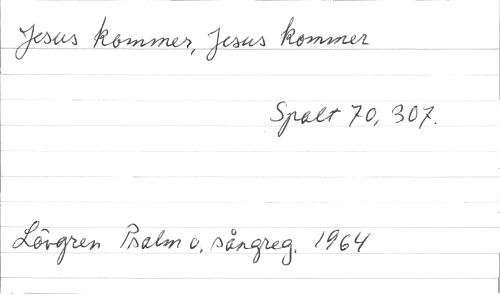 Jesus kommer, Jesus kommer
Spalt 70, 307.
Lövgren Psalm o. sångreg. 1964